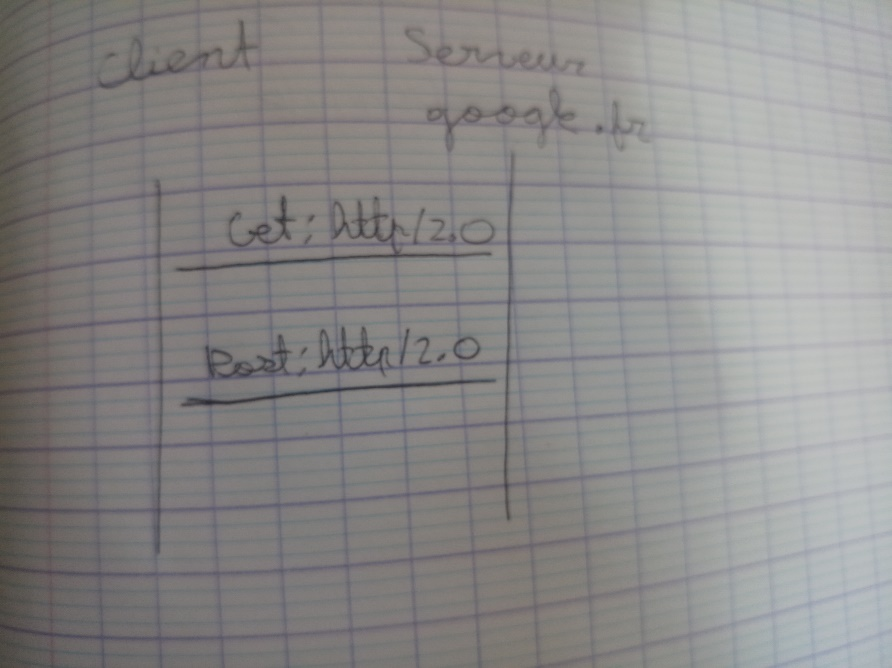 Client Serveur
google.fr
Get: http/2.0
Post: http/2.0